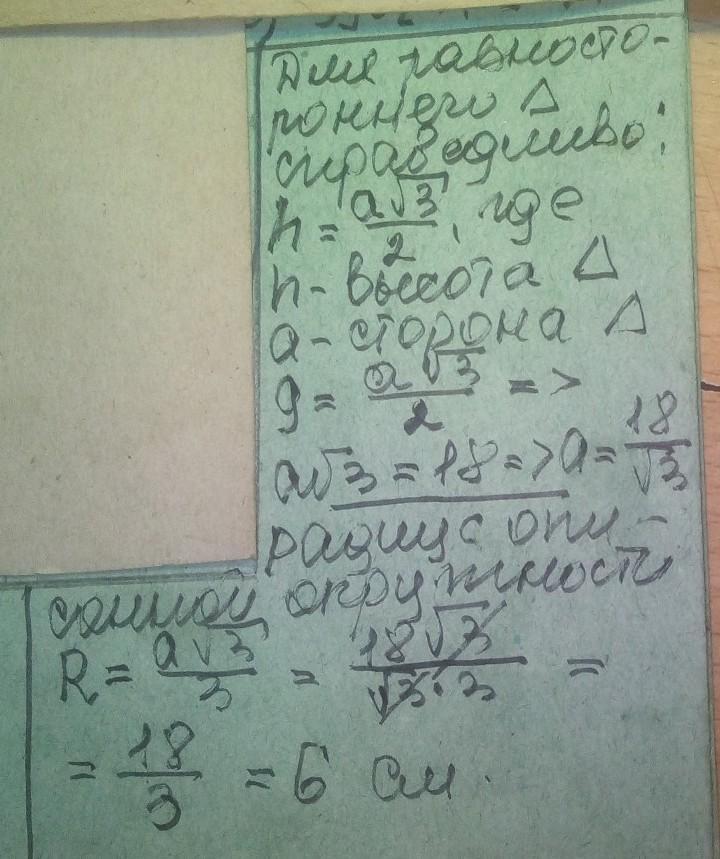 Для равносто-
роннего Δ
справедливо:
h = a√3/2, где
h - высота Δ
a - сторона Δ
9 = a√3/2 =>
a√3 = 18 => a = 18/√3
радиус опи-
санной окружности
R = a√3/3 = 18√3/√3·3 =
= 18/3 = 6 см.